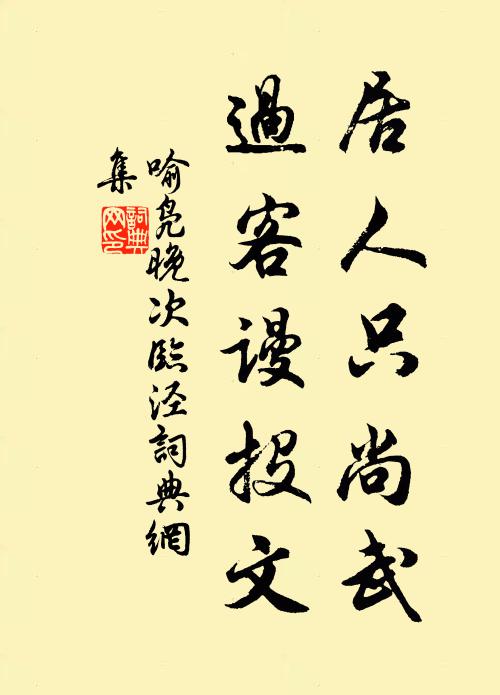 居人只尚武
過客謾投文
喻凫晚次臨泾詞典網
集
詞典
网印